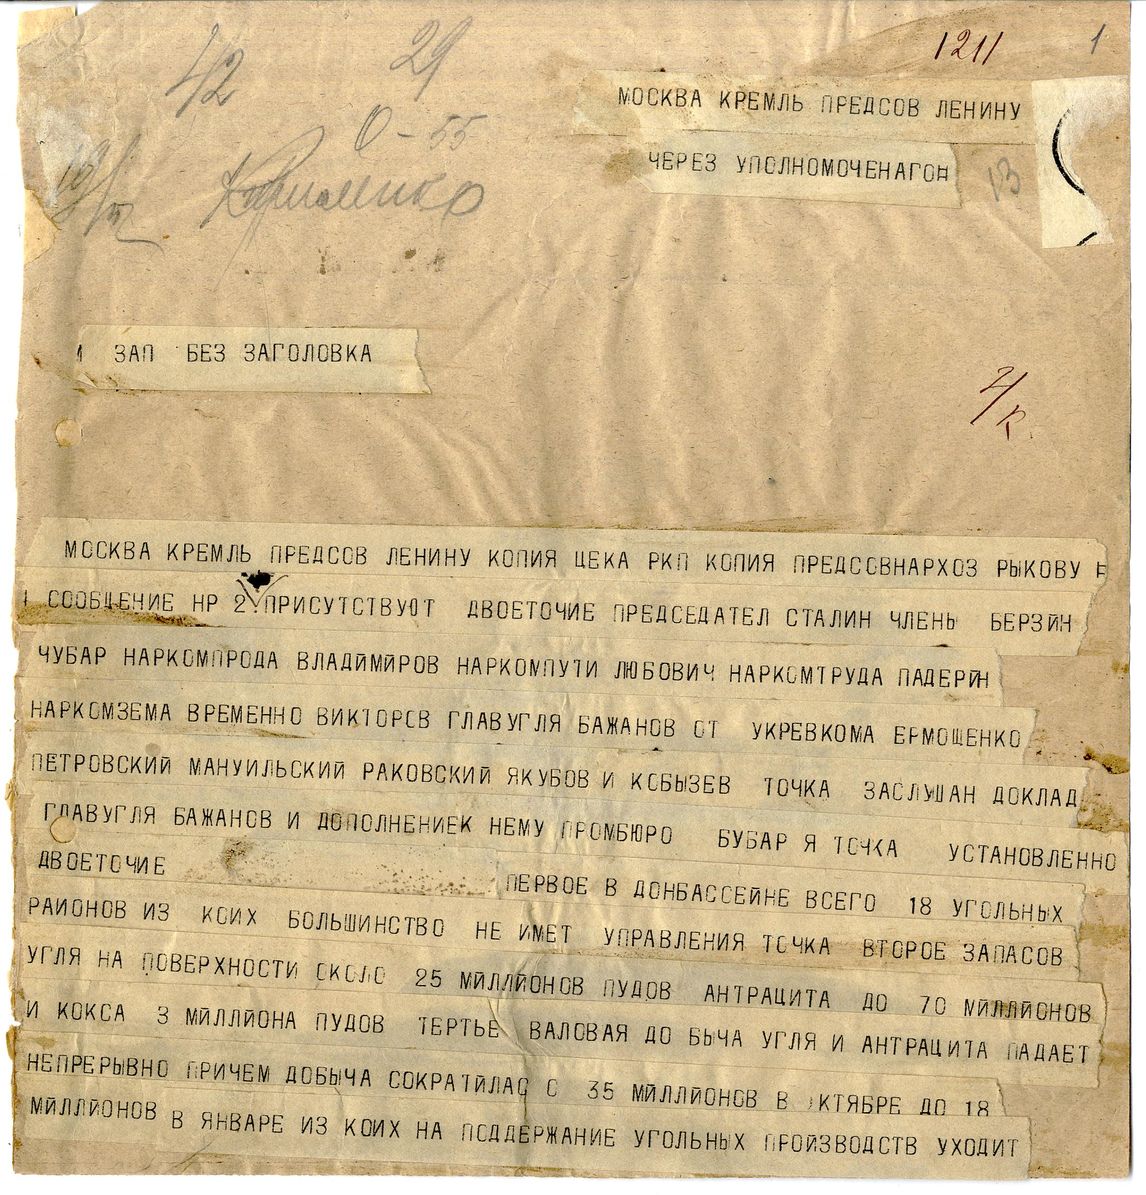 42
29
1211
1
0-55
МОСКВА КРЕМЛЬ ПРЕДСОВ ЛЕНИНУ
ЧЕРЕЗ УПОЛНОМОЧЕНАГО
13
ЗАП БЕЗ ЗАГОЛОВКА
МОСКВА КРЕМЛЬ ПРЕДСОВ ЛЕНИНУ КОПИЯ ЦЕКА РКП КОПИЯ ПРЕДСОВНАРХОЗ РЫКОВУ
СООБЩЕНИЕ НР 2 ПРИСУТСТВУЮТ ДВОЕТОЧИЕ ПРЕДСЕДАТЕЛ СТАЛИН ЧЛЕНЫ БЕРЗЙН
ЧУБАР НАРКОМПРОДА ВЛАДЙМЙРОВ НАРКОМПУТИ ЛЮБОВИЧ НАРКОМТРУДА ПАДЕРЙН
НАРКОМЗЕМА ВРЕМЕННО ВИКТОРОВ ГЛАВУГЛЯ БАЖАНОВ ОТ УКРЕВКОМА ЕРМОЩЕНКО
ПЕТРОВСКИЙ МАНУИЛЬСКИЙ РАКОВСКИЙ ЯКУБОВ И КОБЫЗЕВ ТОЧКА ЗАСЛУШАН ДОКЛАД
ГЛАВУГЛЯ БАЖАНОВ И ДОПОЛНЕНИЕК НЕМУ ПРОМБЮРО БУБАР Я ТОЧКА УСТАНОВЛЕННО
ДВОЕТОЧИЕ ПЕРВОЕ В ДОНБАССЕЙНЕ ВСЕГО 18 УГОЛЬНЫХ
РАИОНОВ ИЗ КОИХ БОЛЬШИНСТВО НЕ ИМЕТ УПРАВЛЕНИЯ ТОЧКА ВТОРОЕ ЗАПАСОВ
УГЛЯ НА ПОВЕРХНОСТИ ОКОЛО 25 МЙЛЛЙОНОВ ПУДОВ АНТРАЦИТА ДО 70 МЙЛЛЙОНОВ
И КОКСА 3 МЙЛЛЙОНА ПУДОВ ТЕРТЬЕ ВАЛОВАЯ ДО БЫЧА УГЛЯ И АНТРАЦИТА ПАДАЕТ
НЕПРЕРЫВНО ПРИЧЕМ ДОБЫЧА СОКРАТЙЛАС С 35 МЙЛЛЙОНОВ В ОКТЯБРЕ ДО 18
МЙЛЛЙОНОВ В ЯНВАРЕ ИЗ КОИХ НА ПОДДЕРЖАНИЕ УГОЛЬНЫХ ПРОЙЗВОДСТВ УХОДИТ